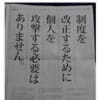 制度を
改正するために
個人を
攻撃する必要は
ありません。